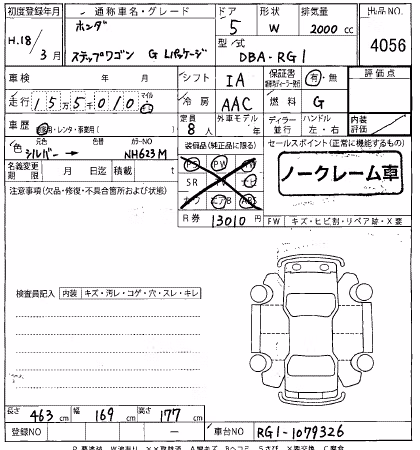 初度登録年月 通称車名・グレード ドア 形状 排気量 出品NO
H.18/3月 ホンダ ステップワゴン G Lパッケージ 5 W 2000cc 4056
型式 DBA-RG1
車検 年 月 シフト IA 保証書 有・無 評価点
走行 155010 マイル 冷房 AAC 燃料 G
車歴 自家用・レンタ・事業用( ) 定員 8人 外車モデル 年 ディーラー 並行 ハンドル 左・右 内装評価
色 元色 シルバー → 色替 カラーNO NH623M 装備品(純正品に限る) セールスポイント(正常に機能するもの)
名義変更期限 月 日迄 積載 t PS PW
SR ノークレーム車
注意事項(欠品・修復・不具合箇所および状態) エアB ABS
R券 13010円 FW キズ・ヒビ割・リペア跡・X要
検査員記入 内装 キズ・汚レ・コゲ・穴・スレ・キレ
長さ 463cm 幅 169cm 高さ 177cm
登録NO — 車台NO RG1-1079326